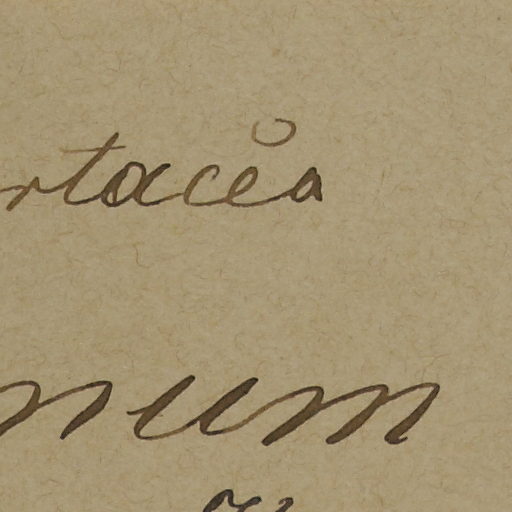 rtacea
num